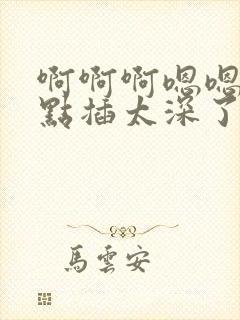 啊啊啊嗯嗯
點插太深了
馬雲安